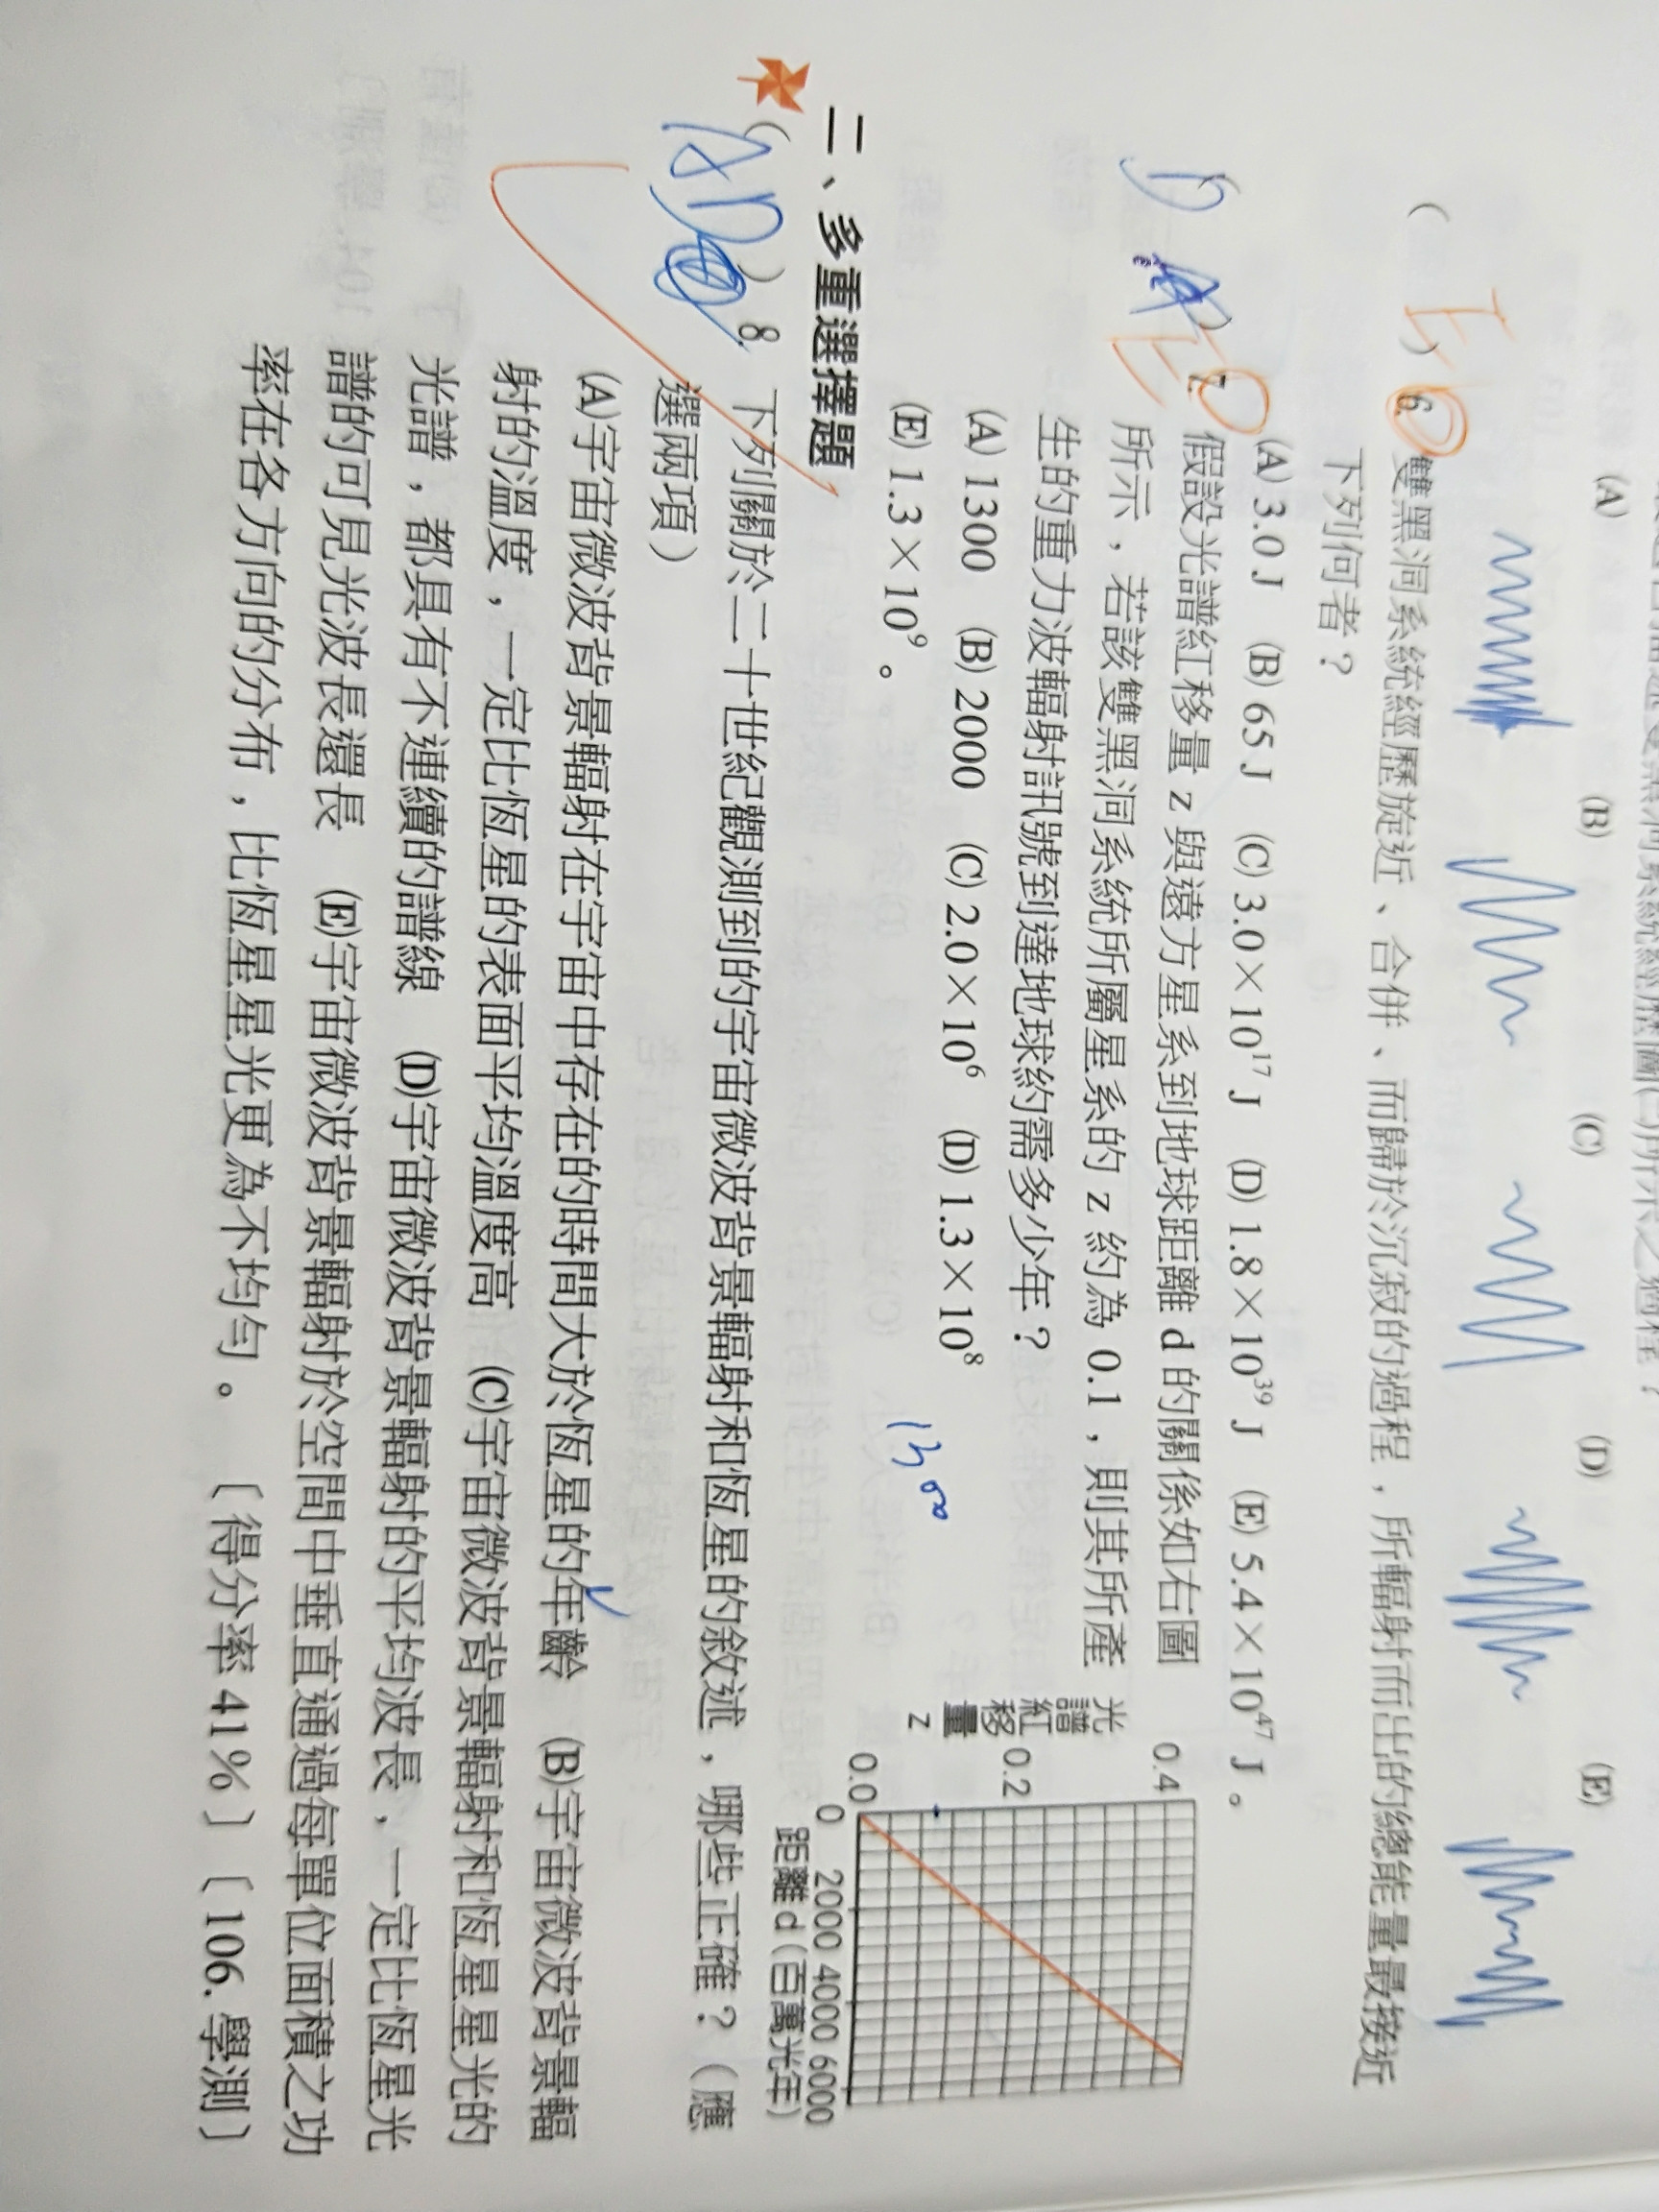 (A) (B) (C) (D) (E)
( E ) 6. 雙黑洞系統經歷旋近、合併、而歸於沉寂的過程，所輻射而出的總能量最接近
下列何者？
(A) 3.0 J (B) 65 J (C) 3.0×10¹⁷ J (D) 1.8×10³⁹ J (E) 5.4×10⁴⁷ J。
D E
7. 假設光譜紅移量 z 與遠方星系到地球距離 d 的關係如右圖
所示，若該雙黑洞系統所屬星系的 z 約為 0.1，則其所產
生的重力波輻射訊號到達地球約需多少年？
(A) 1300 (B) 2000 (C) 2.0×10⁶ (D) 1.3×10⁸
(E) 1.3×10⁹。
1300
光譜紅移量 z
0.4
0.2
0.0
0 2000 4000 6000
距離 d（百萬光年）
二、多重選擇題
( AD ) 8. 下列關於二十世紀觀測到的宇宙微波背景輻射和恆星的敘述，哪些正確？（應
選兩項）
(A)宇宙微波背景輻射在宇宙中存在的時間大於恆星的年齡 (B)宇宙微波背景輻
射的溫度，一定比恆星的表面平均溫度高 (C)宇宙微波背景輻射和恆星星光的
光譜，都具有不連續的譜線 (D)宇宙微波背景輻射的平均波長，一定比恆星光
譜的可見光波長還長 (E)宇宙微波背景輻射於空間中垂直通過每單位面積之功
率在各方向的分布，比恆星星光更為不均勻。〔得分率 41%〕〔106.學測〕